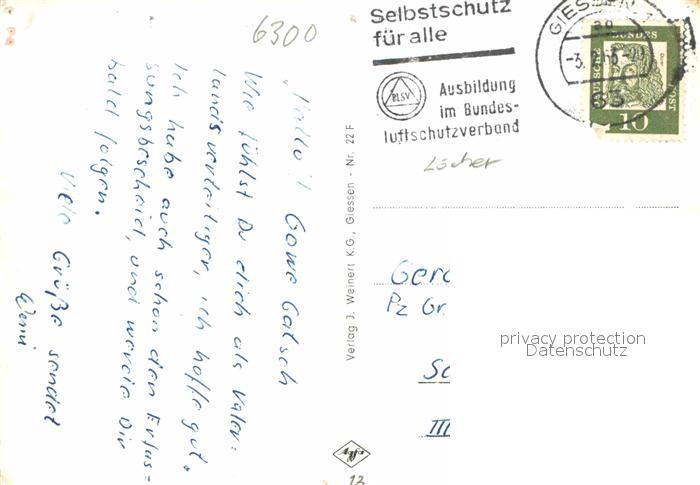 6300
Hallo! Gowe Gatsch
Wie fühlst Du dich als Vater-
landsverteidiger, ich hoffe gut.
Ich habe auch schon den Erfas-
sungsbescheid, und werde Dir
bald folgen.
Viele Grüße sendet
Werni
Verlag J. Weinert K.G., Giessen - Nr. 22 F
12
Selbstschutz
für alle
BLSV
Ausbildung
im Bundes-
luftschutzverband
GIESSEN 1
63
DEUTSCHE BUNDESPOST
10
Löcher
Gerd
Pz Gr
Sc
III
privacy protection
Datenschutz